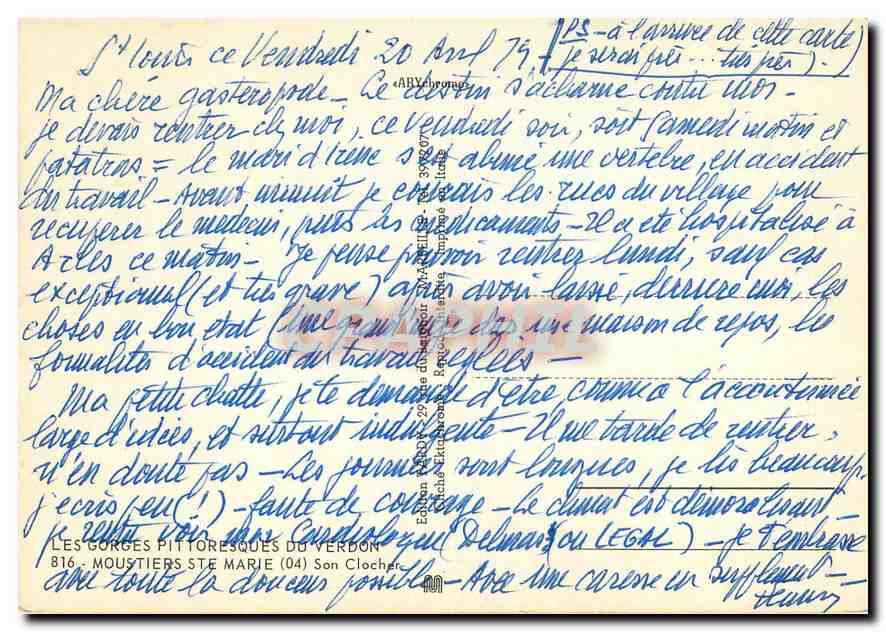 St Louis ce Vendredi 20 Avril 79
PS - à l'arrivée de cette carte
je serai près... très près).
Ma chère gasteropode - Le destin s'acharne contre moi -
je devais rentrer chez moi, ce Vendredi soir, soit Samedi matin et
patatras = le mari d'Irène s'est abimé une vertebre, en accident
du travail - Avant minuit je courais les rues du village pour
recuperer le medecin, puis les medicaments - Il a été hospitalisé à
Arles ce matin - Je pense pouvoir rentrer lundi, sauf cas
exceptionnel (et très grave) après avoir laissé, derrière moi, les
choses en bon etat (une grand'mère dans une maison de repos, les
formalités d'accident du travail reglées -
Ma petite chatte, je te demande d'être, comme à l'accoutumée
large d'idées, et surtout indulgente - Il me tarde de rentrer,
n'en doute pas - Les journées sont longues, je lis beaucoup,
j'ecris peu (!) - faute de courage - Le climat est démoralisant -
je rentre voir mon Cardiologue (Delmas ou LEGAL) - Je t'embrasse
avec toute la douceur possible - Avec une caresse en supplement -
«ARYchrome»
Edition - 29, rue MARSEILLE - Tél.
Cliché Ektachrome - Imprimé en Italie
CPAPHIL
LES GORGES PITTORESQUES DU VERDON
816 - MOUSTIERS STE MARIE (04) Son Clocher